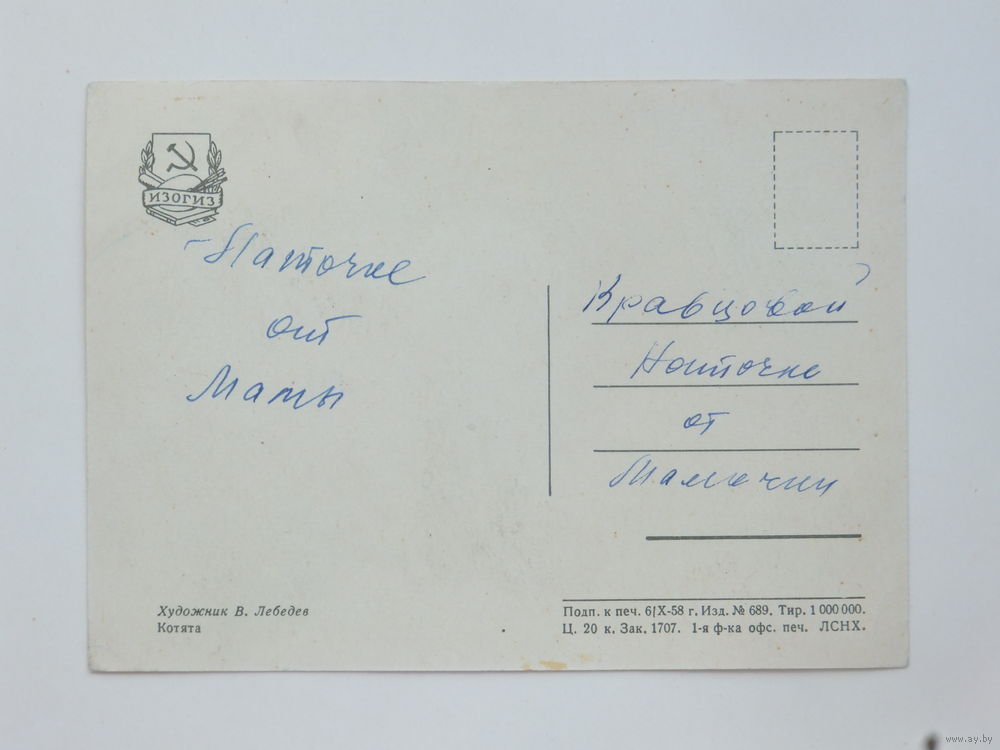 ИЗОГИЗ
Наточке
от
Мамы
Кравцовой
Наточке
от
Мамочки
Художник В. Лебедев
Котята
Подп. к печ. 6/X-58 г. Изд. № 689. Тир. 1 000 000.
Ц. 20 к. Зак. 1707. 1-я ф-ка офс. печ. ЛСНХ.
www.ay.by